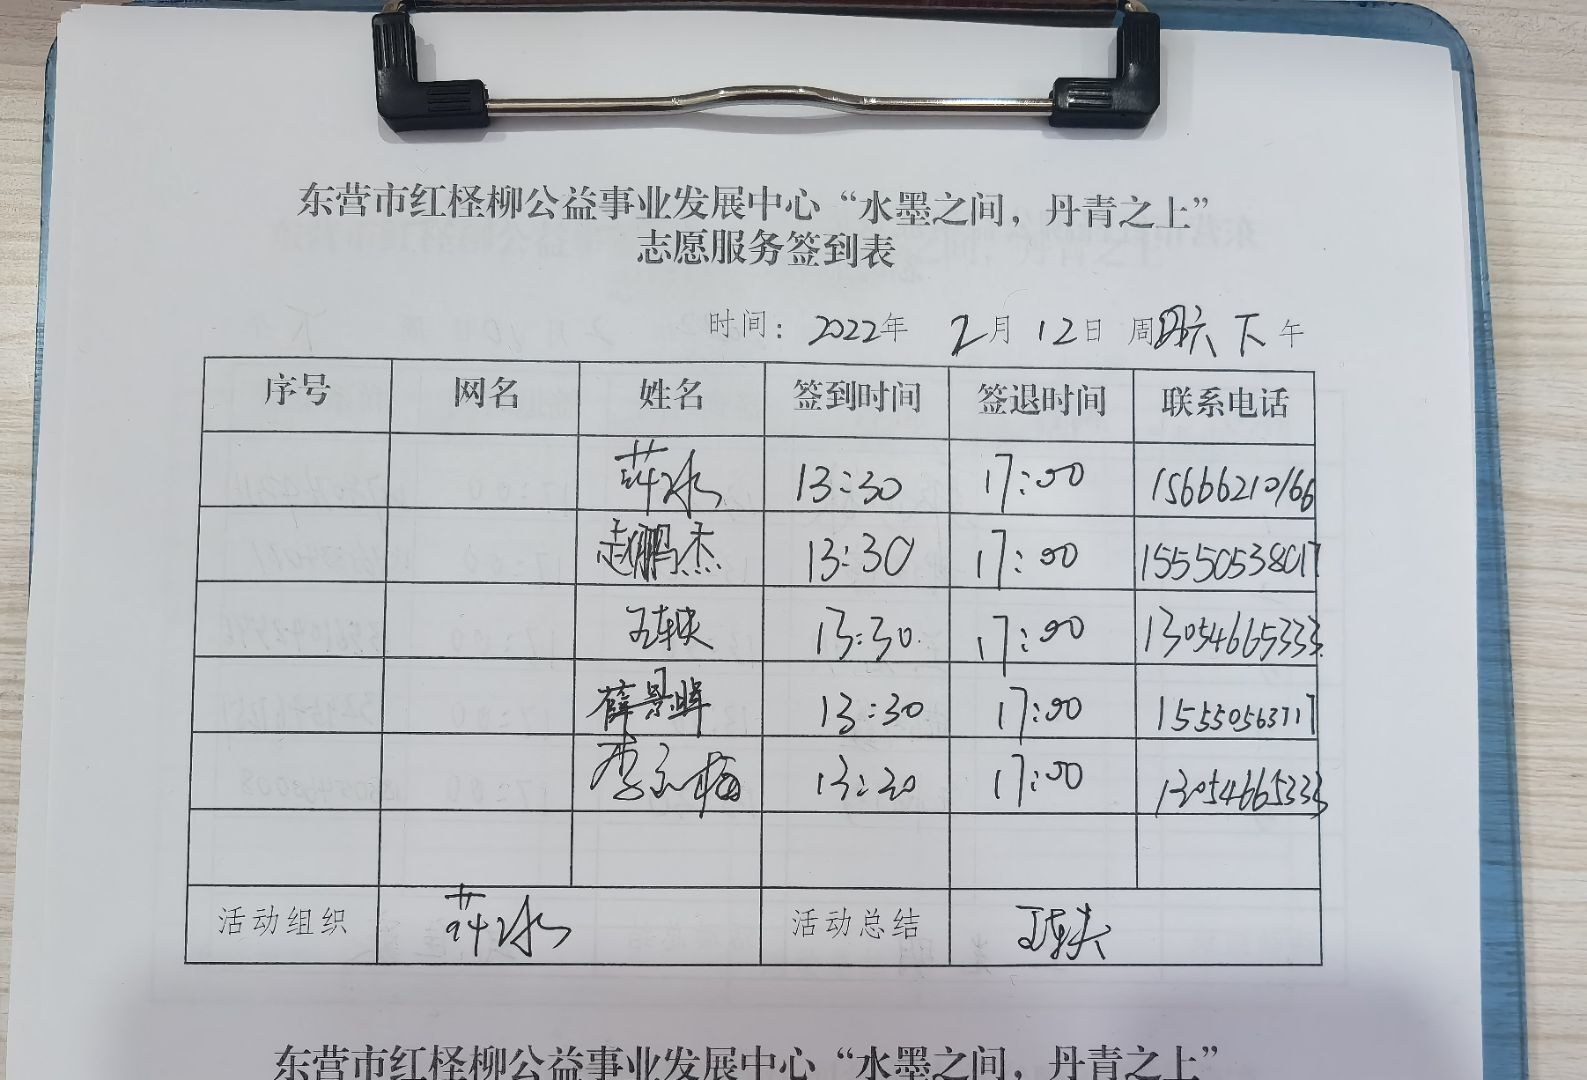 东营市红柽柳公益事业发展中心“水墨之间，丹青之上”
志愿服务签到表
时间： 2022年 2月 12日 周六 下午
序号 网名 姓名 签到时间 签退时间 联系电话
13:30 17:00 15666210166
赵鹏杰 13:30 17:00 15550538017
13:30. 17:00 13054665333
薛景晖 13:30 17:00 15550563717
13:30 17:00 13054665333
活动组织 活动总结
东营市红柽柳公益事业发展中心“水墨之间，丹青之上”